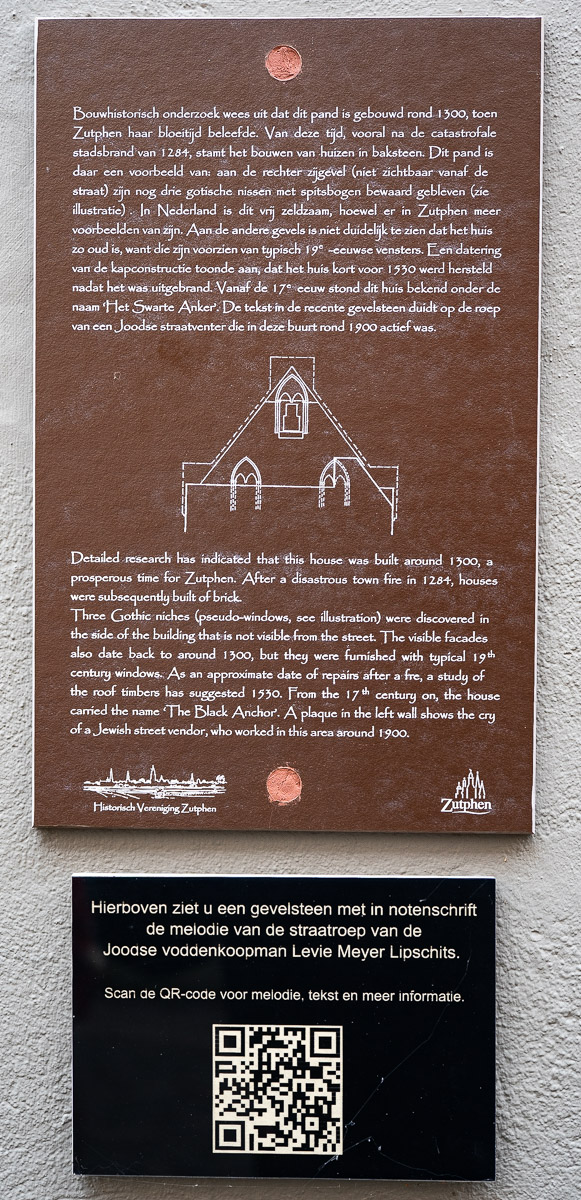 Bouwhistorisch onderzoek wees uit dat dit pand is gebouwd rond 1300, toen
Zutphen haar bloeitijd beleefde. Van deze tijd, vooral na de catastrofale
stadsbrand van 1284, stamt het bouwen van huizen in baksteen. Dit pand is
daar een voorbeeld van: aan de rechter zijgevel (niet zichtbaar vanaf de
straat) zijn nog drie gotische nissen met spitsbogen bewaard gebleven (zie
illustratie) . In Nederland is dit vrij zeldzaam, hoewel er in Zutphen meer
voorbeelden van zijn. Aan de andere gevels is niet duidelijk te zien dat het huis
zo oud is, want die zijn voorzien van typisch 19e -eeuwse vensters. Een datering
van de kapconstructie toonde aan, dat het huis kort voor 1530 werd hersteld
nadat het was uitgebrand. Vanaf de 17e eeuw stond dit huis bekend onder de
naam 'Het Swarte Anker'. De tekst in de recente gevelsteen duidt op de roep
van een Joodse straatventer die in deze buurt rond 1900 actief was.
Detailed research has indicated that this house was built around 1300, a
prosperous time for Zutphen. After a disastrous town fire in 1284, houses
were subsequently built of brick.
Three Gothic niches (pseudo-windows, see illustration) were discovered in
the side of the building that is not visible from the street. The visible facades
also date back to around 1300, but they were furnished with typical 19th
century windows. As an approximate date of repairs after a fre, a study of
the roof timbers has suggested 1530. From the 17th century on, the house
carried the name 'The Black Anchor'. A plaque in the left wall shows the cry
of a Jewish street vendor, who worked in this area around 1900.
Historisch Vereniging Zutphen
Zutphen
Hierboven ziet u een gevelsteen met in notenschrift
de melodie van de straatroep van de
Joodse voddenkoopman Levie Meyer Lipschits.
Scan de QR-code voor melodie, tekst en meer informatie.